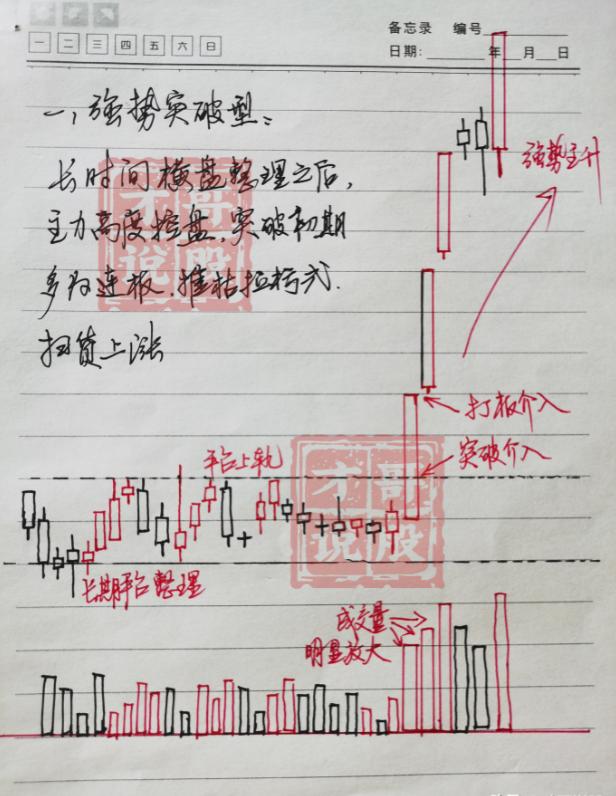 备忘录 编号
一 二 三 四 五 六 日
日期: 年 月 日
一、强势突破型：
长时间横盘整理之后，
主力高度控盘，突破初期
多为连板、摧枯拉朽式.
扫货上涨
才哥说股
强势主升
打板介入
突破介入
平台上轨
才哥说股
长期平台整理
成交量
明显放大